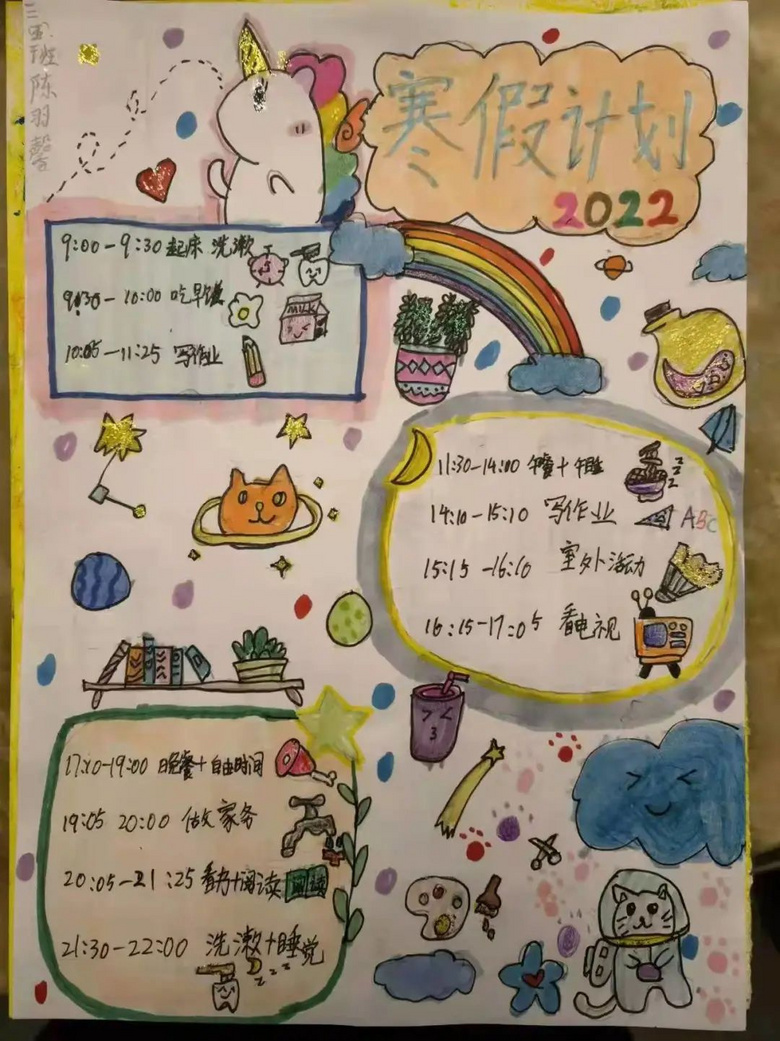 三四班陈羽馨
寒假计划
2022
9:00-9:30 起床 洗漱
9:30-10:00 吃早餐
MILK
10:05-11:25 写作业
11:30-14:00 午餐+午睡
zzz
14:10-15:10 写作业
ABC
15:15-16:10 室外活动
16:15-17:05 看电视
17:10-19:00 晚餐+自由时间
19:05 20:00 做家务
20:05-21:25 +阅读
阅读
21:30-22:00 洗漱+睡觉
zzz